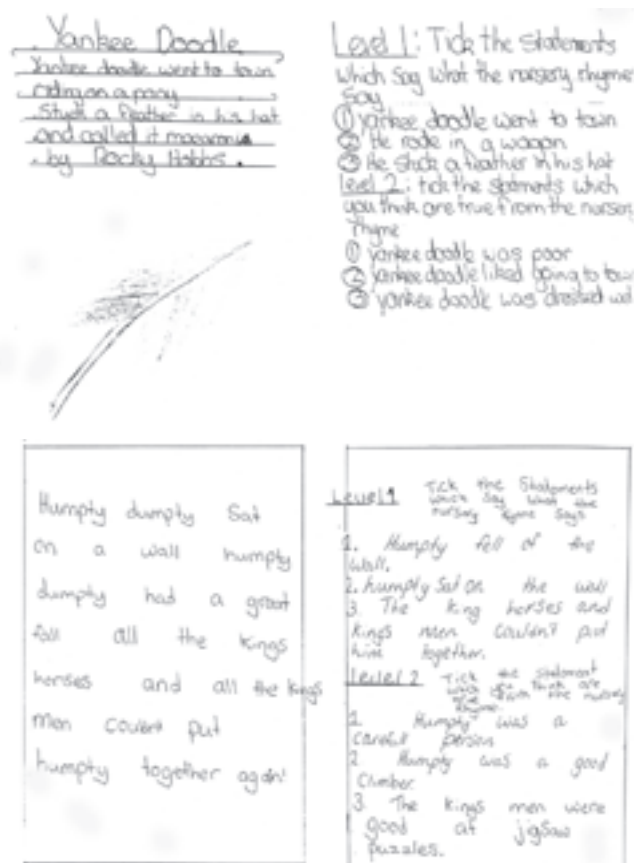 Yankee Doodle
Yankee doodle went to town
riding on a pony
Stuck a feather in his hat
and called it macaronia
by Rocky Hobbs.
Level 1: Tick the statements
which say what the nursery rhyme
say
① yankee doodle went to town
② He rode in a wagon
③ He stuck a feather in his hat
level 2: tick the statments which
you think are true from the nursery
rhyme
① yankee doodle was poor
② yankee doodle liked going to tow
③ yankee doodle was dressed wel
Humpty dumpty Sat
on a wall humpty
dumpty had a great
fall all the kings
horses and all the kings
men couldnt put
humpty together again!
Level 1 Tick the Statements
which say what the
nursery ryme says
1. Humpty fell of the
wall.
2. humpty Sat on the wall
3. The king horses and
kings men couldn't put
him together.
level 2 Tick the statement
which you think are
true from the nursery
rhyme.
1. Humpty was a
carefull person
2. Humpty was a good
Climber.
3. The kings men were
good at jigsaw
puzzles.